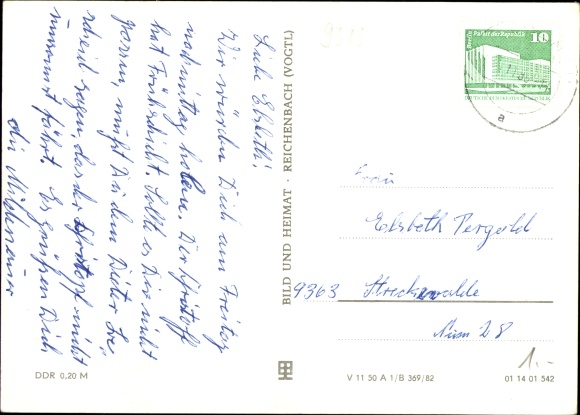 Liebe Elsbeth!
Wir würden Dich am Freitag
nachmittag holen. Der
hat Frühschicht. Sollte es Dir nicht
passen, mußt Du dem Dieter Be-
scheid sagen, das der nicht
umsonst fährt. Es grüßen Dich
die
BILD UND HEIMAT · REICHENBACH (VOGTL)
DDR 0,20 M
Berlin Palast der Republik
10
DEUTSCHE DEMOKRATISCHE REPUBLIK
a
Frau
Elsbeth Pergold
9363 Streckewalde
Num 28
1.-
V 11 50 A 1/B 369/82
01 14 01 542